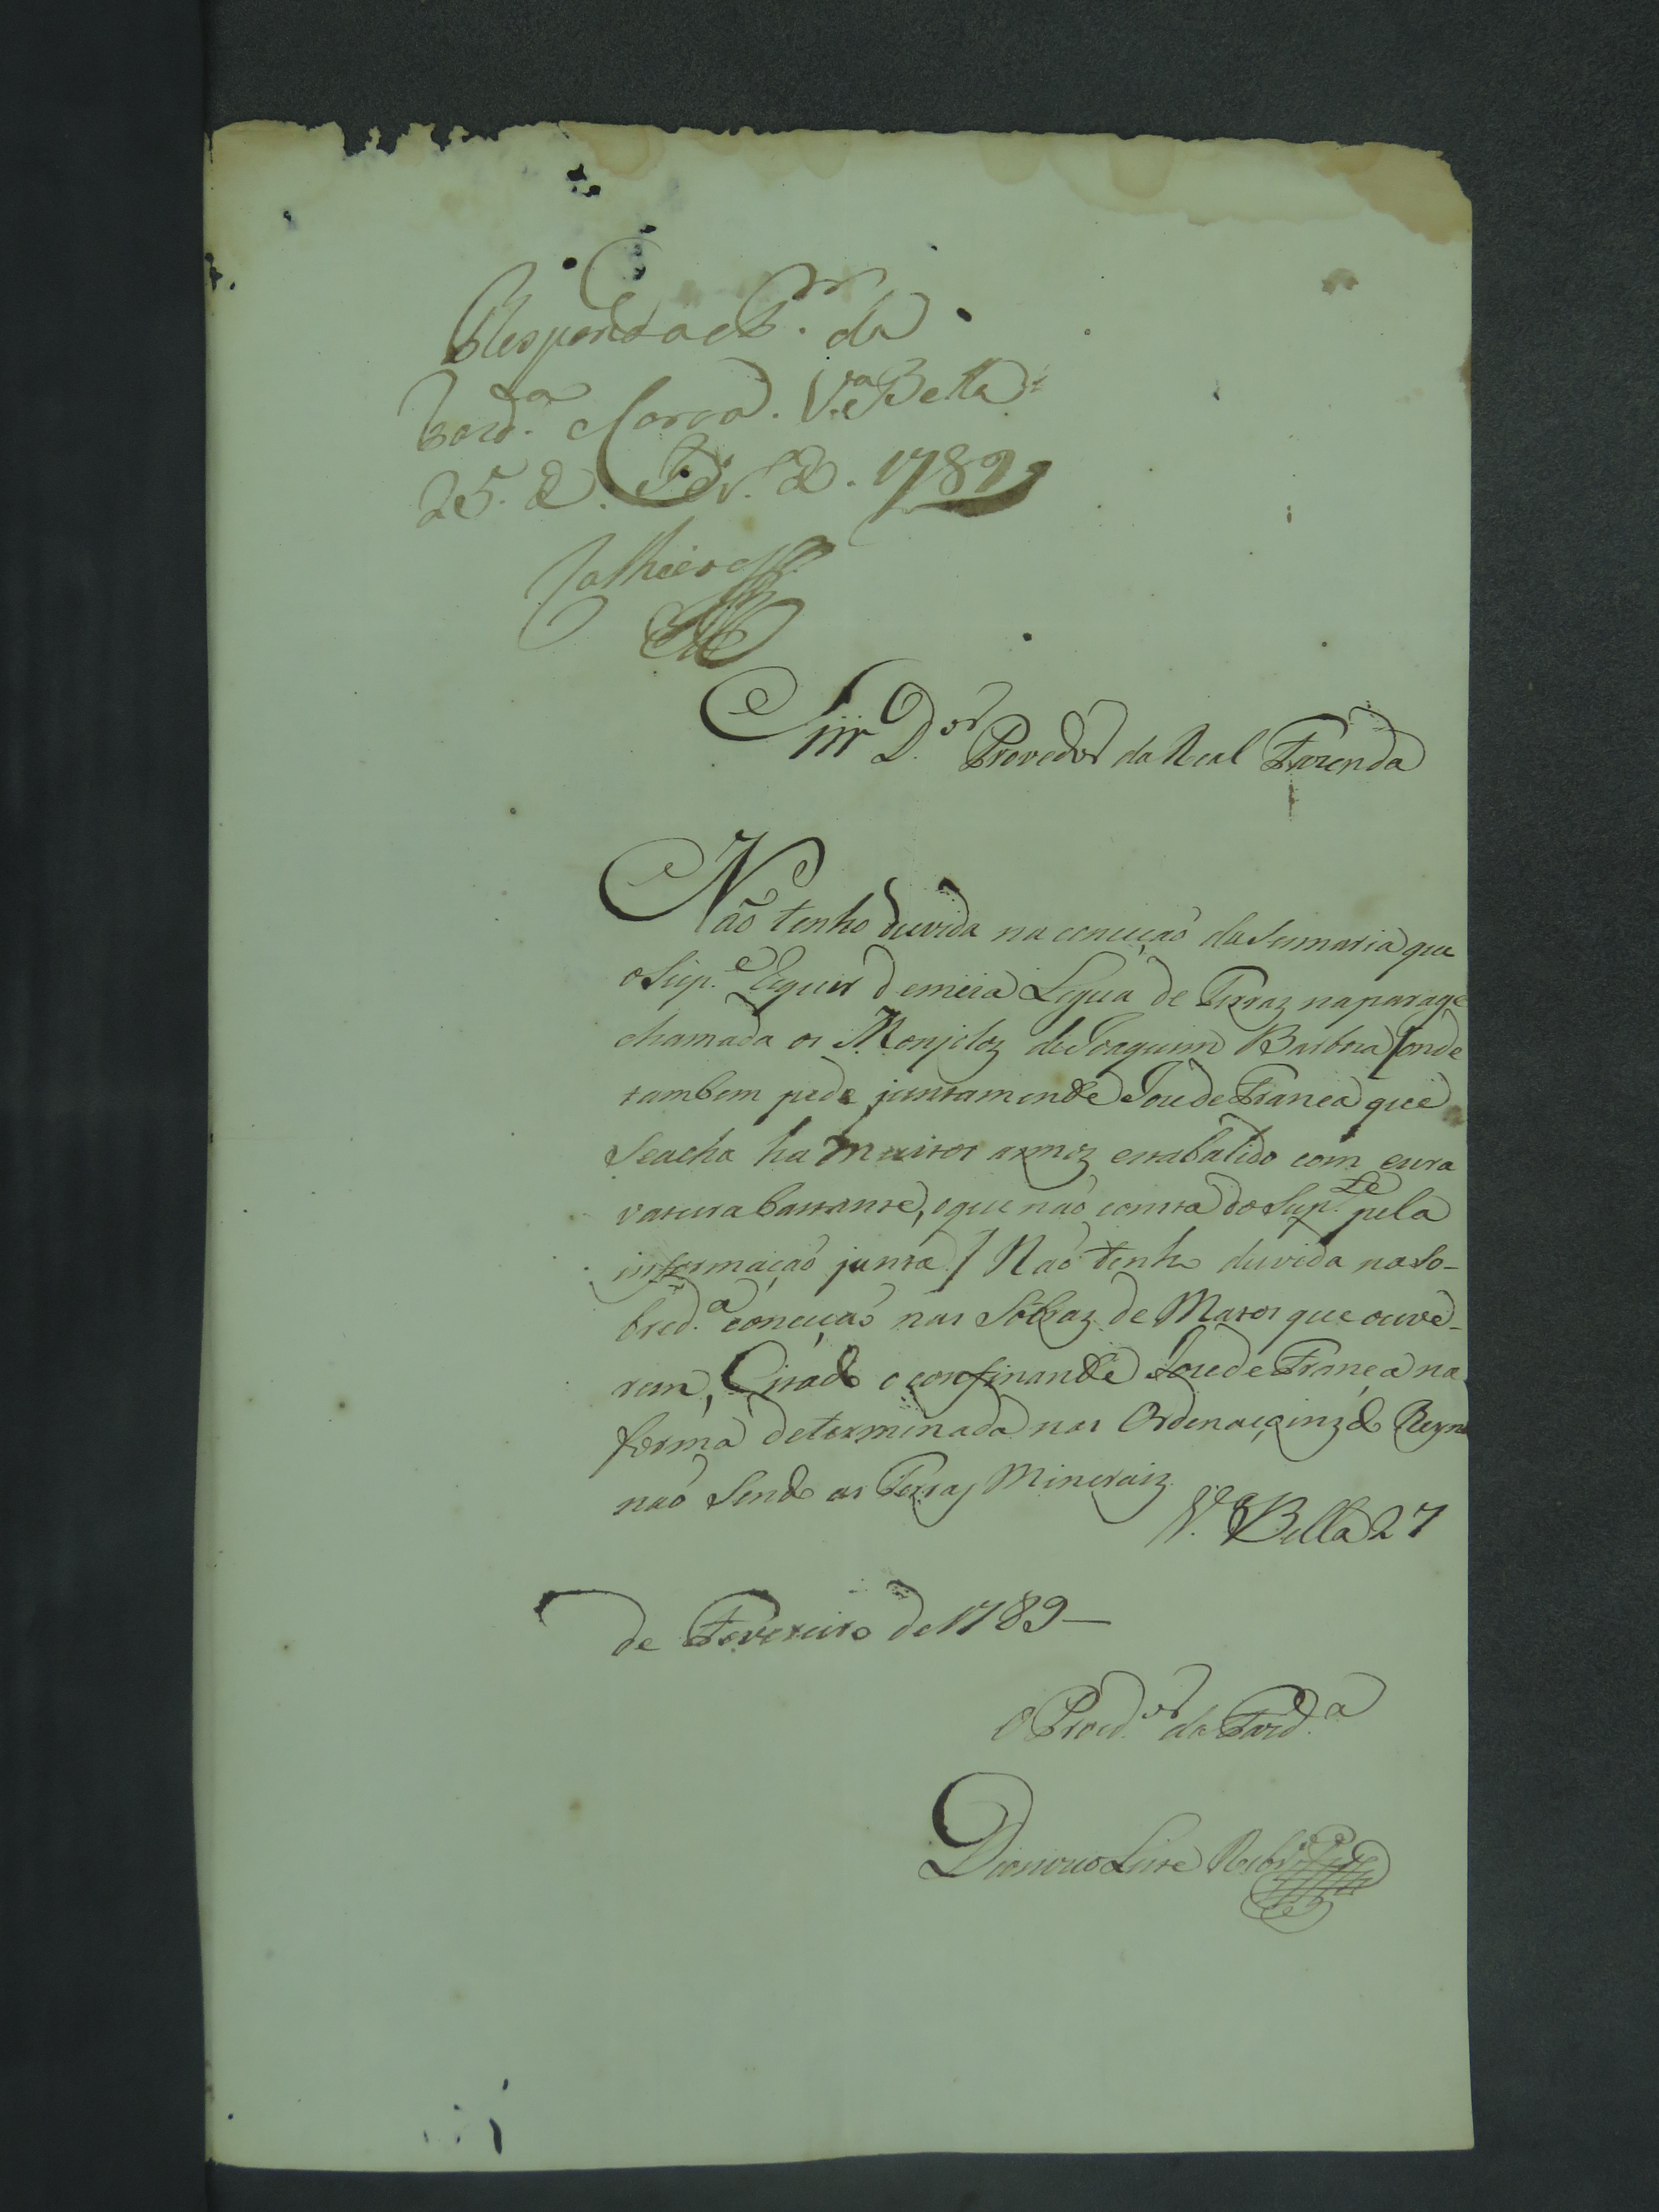 Responda o Pr. da
Fazd.ª e Coroa. V.ª Bella
25. de Fevr.º de. 1789
Snr. D.or Provedor da Real Fazenda
Não tenho duvida na concuçaõ da Sesmaria que
o Sup.e Requer de meia Legua de Terraz na parage
chamada os Monjoloz de Joaquim Barboza /onde
tambem pede juntamente Joze de França que
se acha ha muitos annoz estabalicido com escra
vatura bastante, o que naõ consta do Sup.te pela
informaçaõ junta./ Naõ tenho duvida na So-
bred.ª concuçaõ nas Sobraz de Matos que ouve-
rem, Citado o confinante Joze de França na
forma determinada nas Ordenaçoinz do Reyno
naõ Sendo as Terras Mineraiz. V.ª Bella 27
de Fevereiro de 1789—
O Proc.or da Fazd.ª
Dionizio Leite